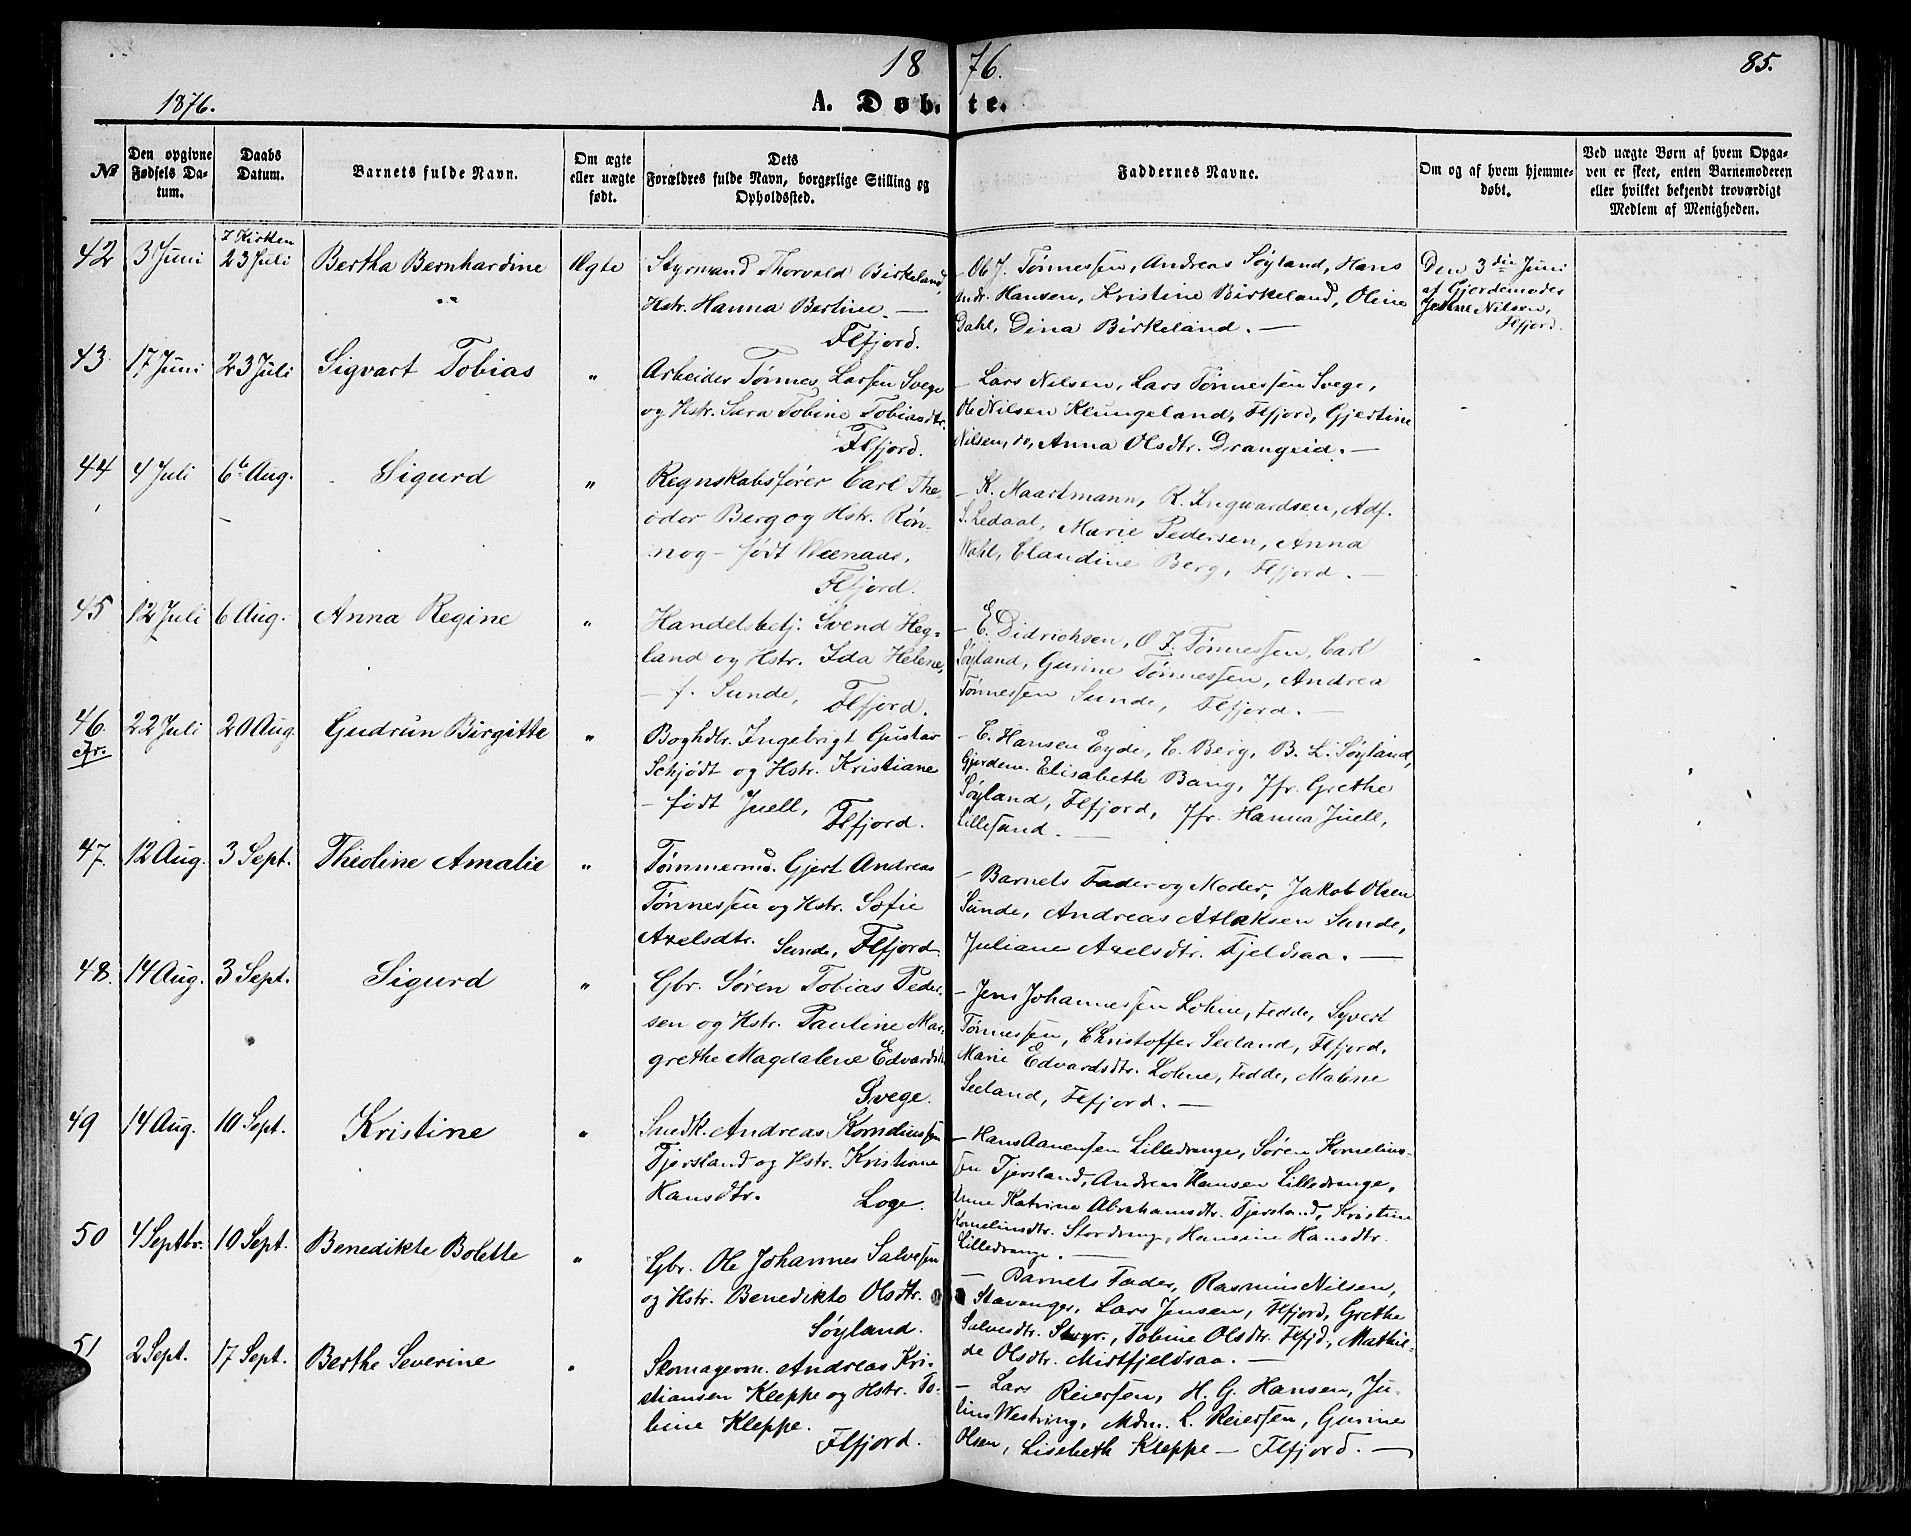 18 76. 85.
1876. A. Døbte.
No
Den opgivne Fødsels Datum.
Daabs Datum.
Barnets fulde Navn.
Om ægte eller uægte født.
Dets Forældres fulde Navn, borgerlige Stilling og Opholdssted.
Faddernes Navne.
Om og af hvem hjemmedøbt.
Ved uægte Børn af hvem Opgaven er skeet, enten Barnemoderen eller hvilket bekjendt troværdigt Medlem af Menigheden.
42 3 Juni I Kirken 23 Juli Bertha Bernhardine Ægte
Styrmand Thorvald Birkeland,
Hstr. Hanna Bertine. —
Flfjord.
– Ole J. Tønnessen, Andreas Søyland, Hans
Andr. Hansen, Kristine Birkeland, Oline
Dahl, Dina Birkeland. —
Den 3die Juni
af Gjordemoder
Nilsen,
Flfjord.
43 17 Juni 23 Juli Sigvart Tobias "
Arbeider Tønnes Larsen Svege
og Hstr. Sara Tobine Tobiasdtr.
Flfjord.
– Lars Nilsen, Lars Tønnessen Svege,
Ole Nilsen Klungeland, Flfjord, Gjertine
Nilsen, do, Anna Olsdtr. Drangeid. —
44 4 Juli 6te Aug. Sigurd "
Regnskabsfører Carl The-
odor Berg og Hstr. Røn-
nog – født Weenaas,
Flfjord.
– K. Maartmann, R. Inguardsen, Adf.
S. Ledaal, Marie Pedersen, Anna
Wahl, Claudine Berg, Flfjord. —
45 12 Juli 6 Aug. Anna Regine "
Handelsbetj. Svend Heg-
land og Hstr. Ida Helene,
– f. Sunde, Flfjord.
– E. Didrichsen, O. J. Tønnessen, Carl
Søyland, Gurine Tønnessen, Andrea
Tønnessen Sunde, Flfjord. —
46 cfr. 22 Juli 20 Aug. Gudrun Birgitte "
Boghdlr. Ingebrigt Gustav
Schjødt og Hstr. Kristiane
– født Juell, Flfjord.
– E. Hansen Eyde, C. Berg, B. L. Søyland,
Gjordem. Elisabeth Bang, Jfr. Grethe
Søyland, Flfjord, Jfr. Hanna Juell,
Lillesand. —
47. 12 Aug. 3 Sept. Theoline Amalie "
Tømmermd. Gjert Andreas
Tønnessen og Hstr. Sofie
Axelsdtr. Sunde, Flfjord
– Barnets Fader og Moder, Jakob Olsen
Sunde, Andreas Atlaksen Sunde,
Juliane Axelsdtr. Fjeldsaa. —
48. 14 Aug. 3 Sept. Sigurd "
Gbr. Søren Tobias Peder-
sen og Hstr. Pauline Mar-
grethe Magdalene Edvardsdtr.
Svege.
– Jens Johannessen Lohne, Fedde, Syvert
Tønnessen, Christoffer Seeland, Flfjord,
Marie Edvardsdtr. Lohne, Fedde, Malene
Seeland, Flfjord. —
49 14 Aug. 10 Sept. Kristine "
Snedk. Andreas Korneliussen
Tjersland og Hstr. Kristiane
Hansdtr. Loge.
– Hans Aanensen Lilledrange, Søren Kornelius-
sen Tjersland, Andreas Hansen Lilledrange,
Anne Katrine Abrahamsdtr. Tjersland, Kristine
Korneliusdtr. Stordrange, Hansine Hansdtr.
Lilledrange. —
50 4 Septbr. 10 Sept. Benedikte Bolette "
Gbr. Ole Johannes Salvesen
og Hstr. Benedikte Olsdtr.
Søyland.
– Barnets Fader, Rasmus Nilsen,
Stavanger, Lars Jensen, Flfjord, Grethe
Salvesdtr. Stvgr., Tobine Olsdtr. Flfjd., Mathil-
de Olsdtr. Midtfjeldsaa. —
51 2 Sept. 17 Sept. Berthe Severine "
Skomagerm. Andreas Kri-
stiansen Kleppe og Hstr. To-
bine Kleppe.
Flfjord.
– Lars Reiersen, H. G. Hansen, Ju-
lius Westring, Mdm. L. Reiersen, Gurine
Olsen, Lisebeth Kleppe – Flfjord. —